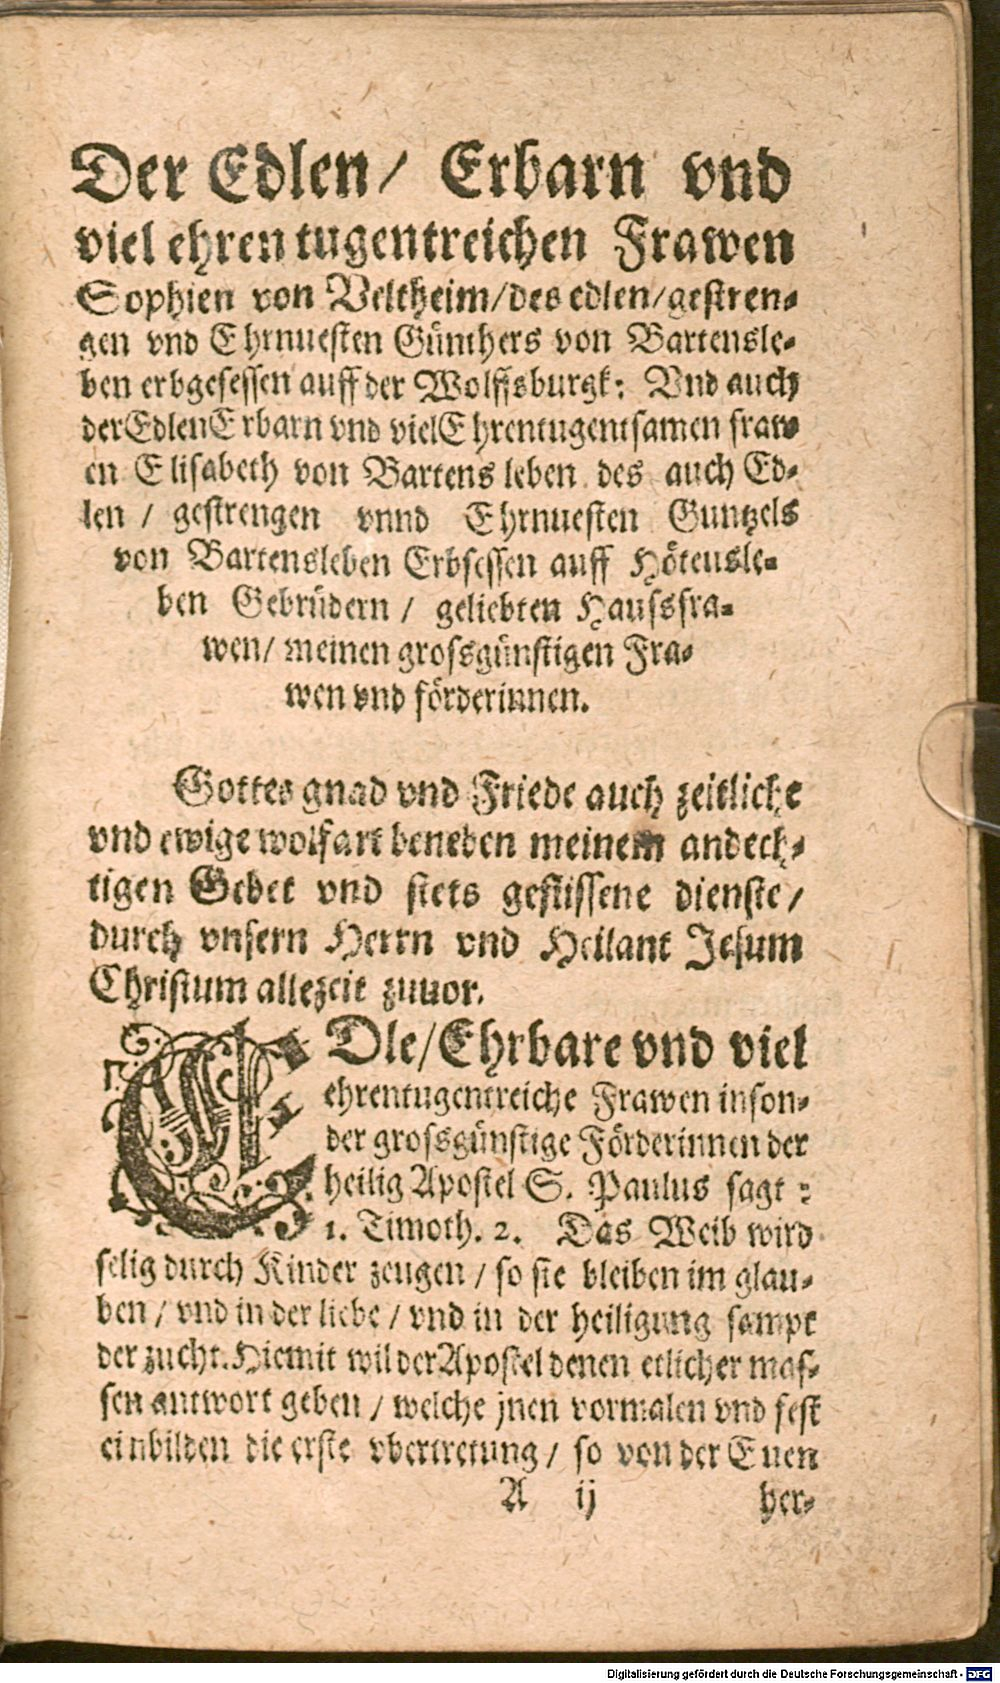 Der Edlen/ Erbarn vnd
viel ehren tugentreichen Frawen
Sophien von Veltheim/des edlen/gestren-
gen vnd Ehrnuesten Günthers von Bartensle-
ben erbgesessen auff der Wolffsburgk: Vnd auch
der Edlen Erbarn vnd viel Ehrentugentsamen fraw
en Elisabeth von Bartensleben des auch Ed-
len / gestrengen vnnd Ehrnuesten Guntzels
von Bartensleben Erbsessen auff Hötensle-
ben Gebrüdern / geliebten Haussfra-
wen/ meinen grossgünstigen Fra-
wen vnd förderinnen.
Gottes gnad vnd Friede auch zeitliche
vnd ewige wolfart beneben meinem andech-
tigen Gebet vnd stets geflissene dienste/
durch vnsern Herrn vnd Heilant Jesum
Christum allezeit zuuor.
EDle/Ehrbare vnd viel
ehrentugentreiche Frawen inson-
der grossgünstige Förderinnen der
heilig Apostel S. Paulus sagt:
1. Timoth. 2. Das Weib wird
selig durch Kinder zeugen / so sie bleiben im glau-
ben / vnd in der liebe / vnd in der heiligung sampt
der zucht. Hiemit wil der Apostel denen etlicher mas-
sen antwort geben / welche jnen vormalen vnd fest
einbilden die erste vbertretung / so von der Euen
A ij her-
Digitalisierung gefördert durch die Deutsche Forschungsgemeinschaft - DFG